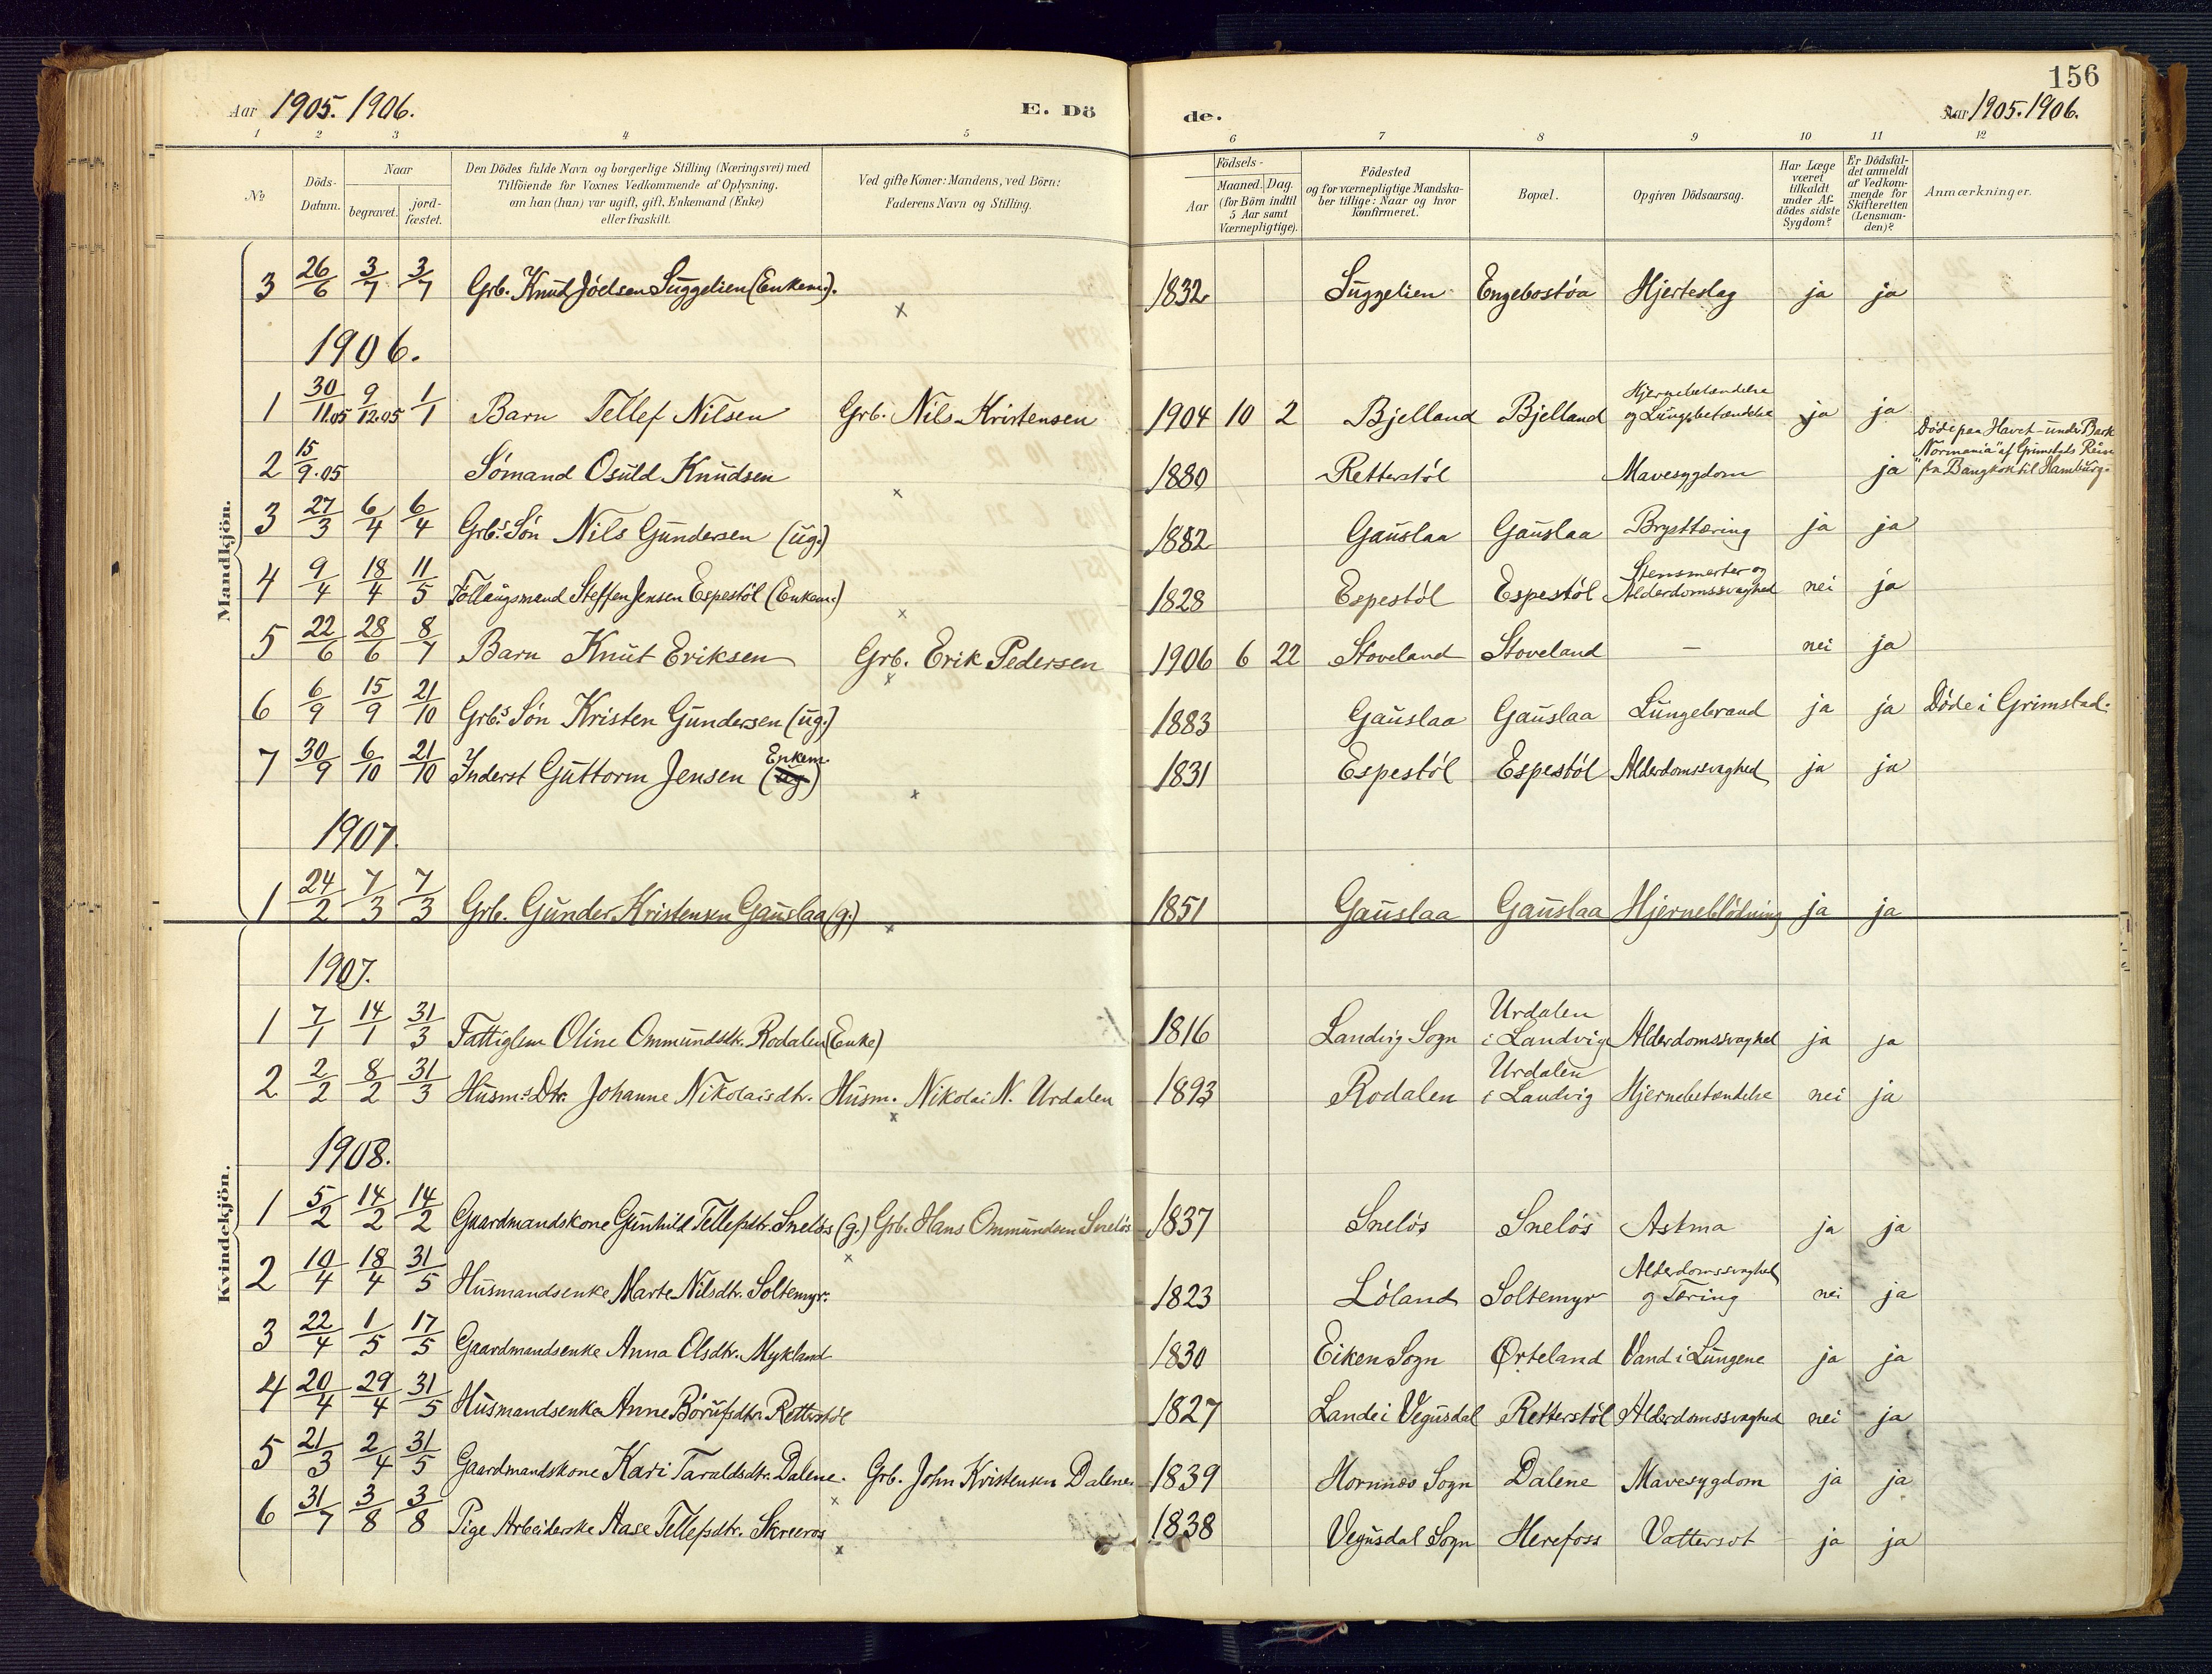 156
Aar 1905. 1906. E. Dö de. Aar 1905. 1906.
1 2 3 4 5 6 7 8 9 10 11 12
No
Döds-Datum.
Naar
begravet.
jord-fæstet.
Den Dödes fulde Navn og borgerlige Stilling (Næringsvei) med
Tilföiende for Voxnes Vedkommende af Oplysning,
om han (hun) var ugift, gift, Enkemand (Enke)
eller fraskilt.
Ved gifte Koner: Mandens, ved Börn:
Faderens Navn og Stilling.
Födsels-
Aar
Maaned. Dag.
(for Börn indtil
5 Aar samt
Værnepligtige).
Födested
og for værnepligtige Mandska-
ber tillige: Naar og hvor
konfirmeret.
Bopæl.
Opgiven Dödsaarsag.
Har Læge
været
tilkaldt
under Af-
dödes sidste
Sygdom?
Er Dödsfal-
det anmeldt
af Vedkom-
mende for
Skifteretten
(Lensman-
den)?
Anmærkninger.
Mandkjön.
3 26/6 3/7 3/7 Grb. Knut Jóelsen Suggelien (Enkem.). x 1832 Suggelien Engebostóa Hjerteslag ja ja
1906.
1 30/11.05 9/12.05 1/1 Barn Tellef Nilsen Grb. Nils Kristensen 1904 10 2 Bjelland Bjelland Hjernebetændelse
og Lungebetændelse ja ja
2 15/9.05 Sómand Osuld Knudsen x 1880 Retterstól Mavesygdom ja Döde paa Havet under Bark
"Normania" af Grimstads
fra Bangkok til Hamburg.
3 27/3 6/4 6/4 Grb.s Són Nils Gundersen (ug.) 1882 Gauslaa Gauslaa Brysttæring ja ja
4 9/4 18/4 11/5 Föllaugsmand Steffen Jensen Espestöl (Enkem.) x 1828 Espestól Espestól Stensmerter og
Alderdomssvaghed nei ja
5 22/6 28/6 8/7 Barn Knut Eriksen Grb. Erik Pedersen x 1906 6 22 Stoveland Stoveland — nei ja
6 6/9 15/9 21/10 Grb.s Són Kristen Gundersen (ug.) 1883 Gauslaa Gauslaa Lungebrand ja ja Döde i Grimstad.
7 30/9 6/10 21/10 Inderst Guttorm Jensen (ug.) Enkem. x 1831 Espestól Espestól Alderdomssvaghed ja ja
1907.
1 24/2 7/3 7/3 Grb. Gunder Kristensen Gauslaa (g.) x 1851 Gauslaa Gauslaa Hjerneblödning ja ja
Kvindekjön.
1907.
1 7/1 14/1 31/3 Fattiglem Oline Ommundsdtr. Rodalen (Enke) 1816 Landvig Sogn Urdalen
i Landvig Alderdomssvaghed ja ja
2 2/2 8/2 31/3 Husm.s Dtr. Johanne Nikolaisdtr. Husm. Nikolai N. Urdalen x 1893 Rodalen Urdalen
i Landvig Hjernebetændelse nei ja
1908.
1 5/2 14/2 14/2 Gaardmandskone Gunhild Tellefsdtr. Snelós (g.) Grb. Hans Ommundsen Snelós x 1837 Snelós Snelós Astma ja ja
2 10/4 18/4 31/5 Husmandsenke Marte Nilsdtr. Soltemyr. 1823 Lóland Soltemyr Alderdomssvaghed
og Tæring nei ja
3 22/4 1/5 17/5 Gaardmandsenke Anna Olsdtr. Mykland 1830 Eiken Sogn Ørteland Vand i Lungene ja ja
4 20/4 29/4 31/5 Husmandsenke Anne Bórufsdtr. Retterstól 1827 Lande i Vegusdal Retterstól Alderdomssvaghed nei ja
5 21/3 2/4 31/5 Gaardmandskone Kari Taraldsdtr. Dalene. Grb. John Kristensen Dalene. x 1839 Hornnæs Sogn Dalene Mavesygdom ja ja
6 31/7 3/8 3/8 Pige Arbeiderske Aase Tellefsdtr. Skreeros x 1838 Vegusdal Sogn Herefoss Vattersot ja ja